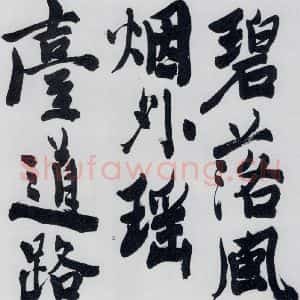 碧落風
烟外瑶
臺道路
Shufawang.cn